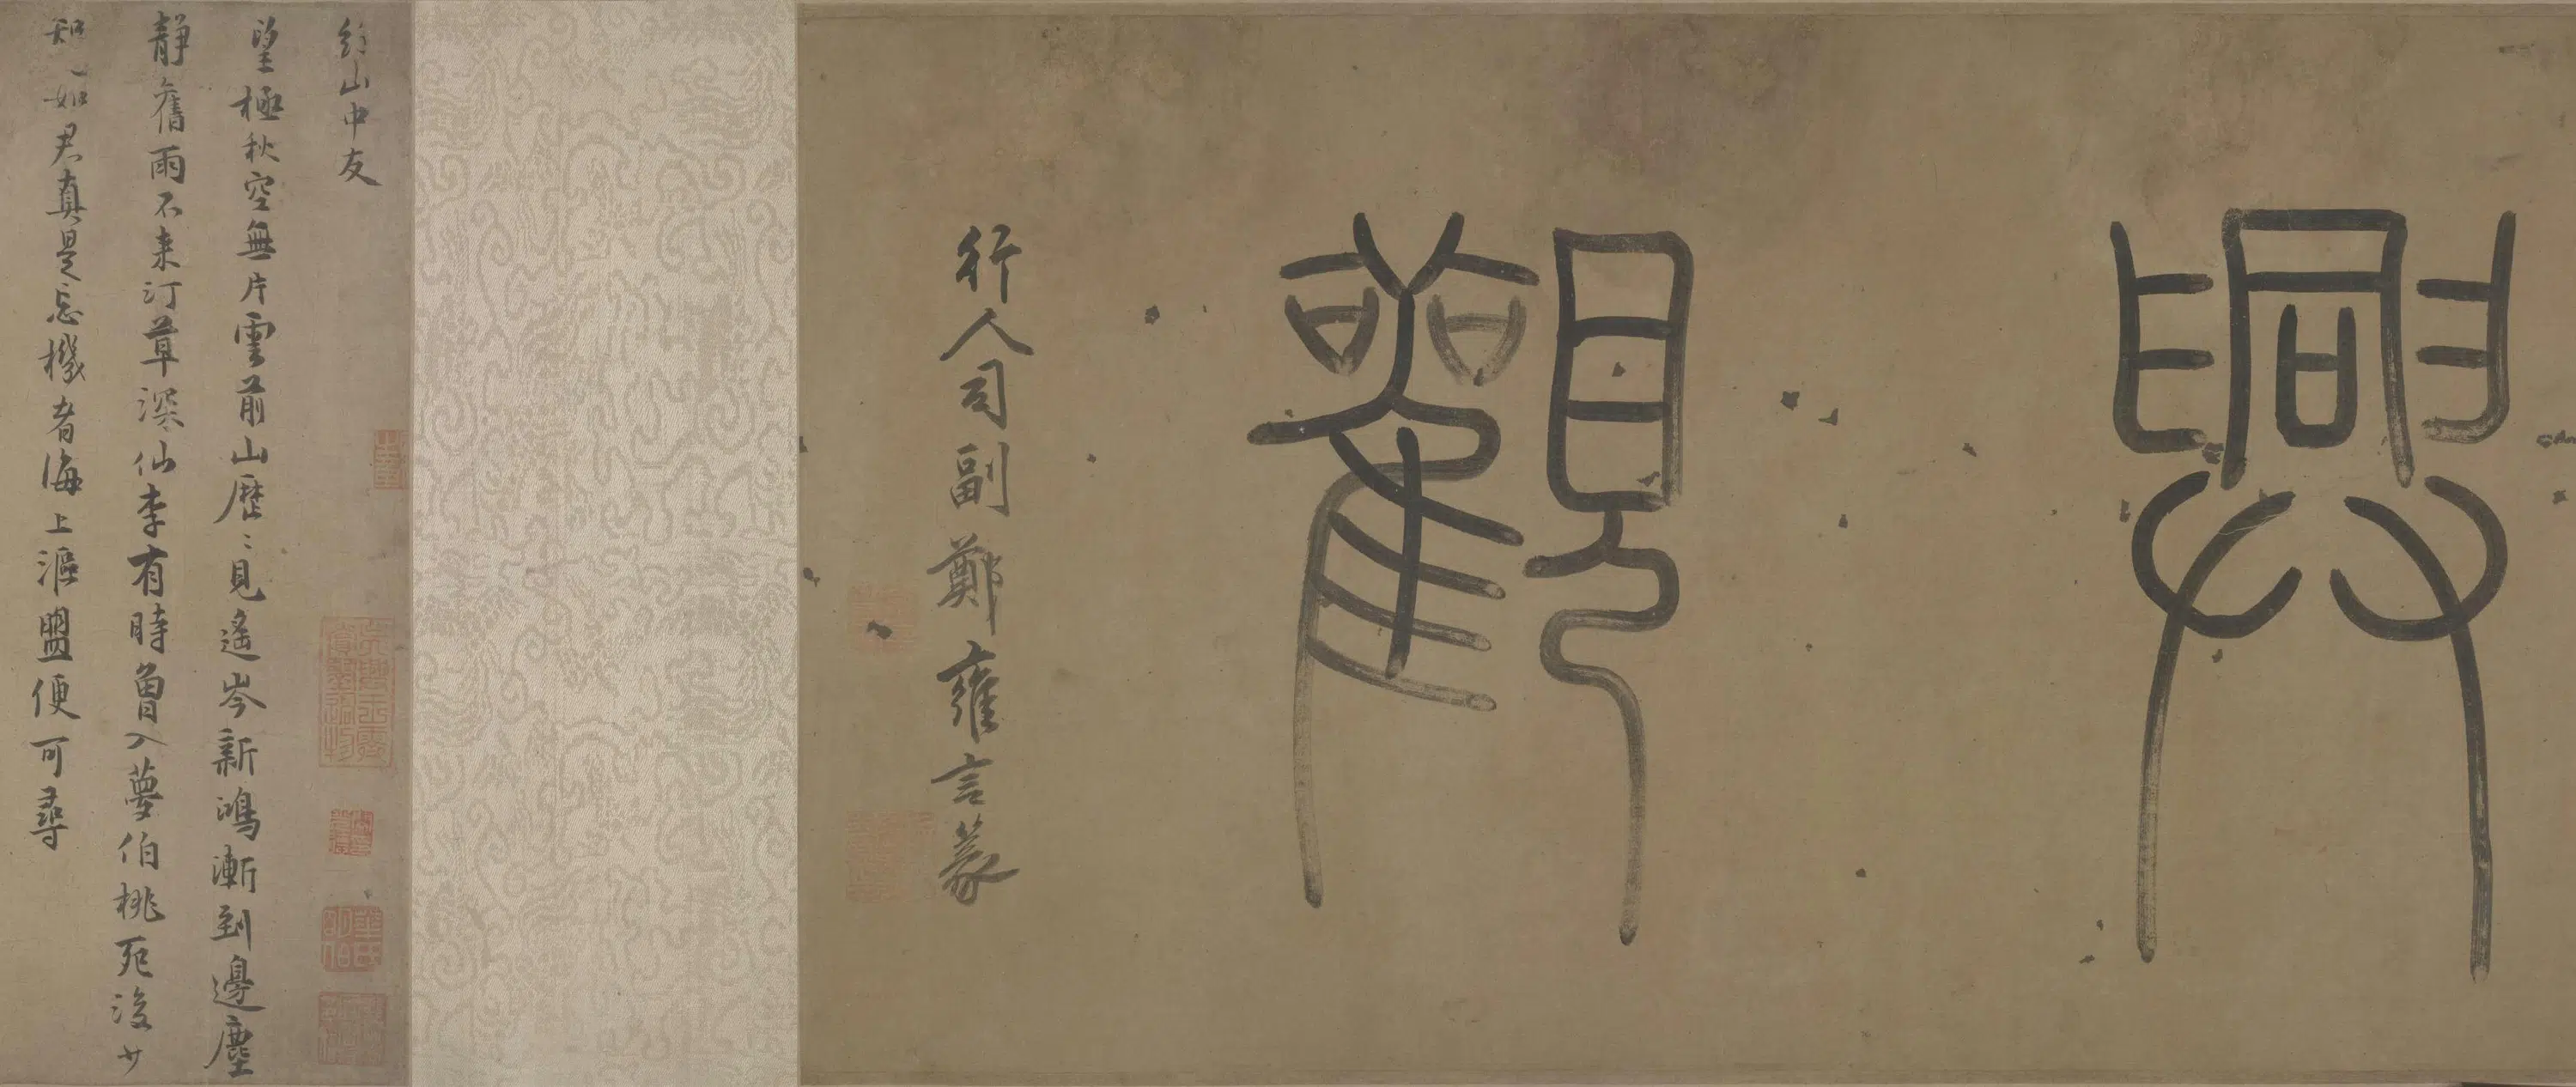 興觀
行人司副鄭雍言篆
約山中友
望極秋空無片雲前山歷〻見遙岑新鴻漸到邊塵
靜舊雨不来汀草深仙李有時曾入夢伯桃死後少
知心如君真是忘機者海上漚盟便可尋